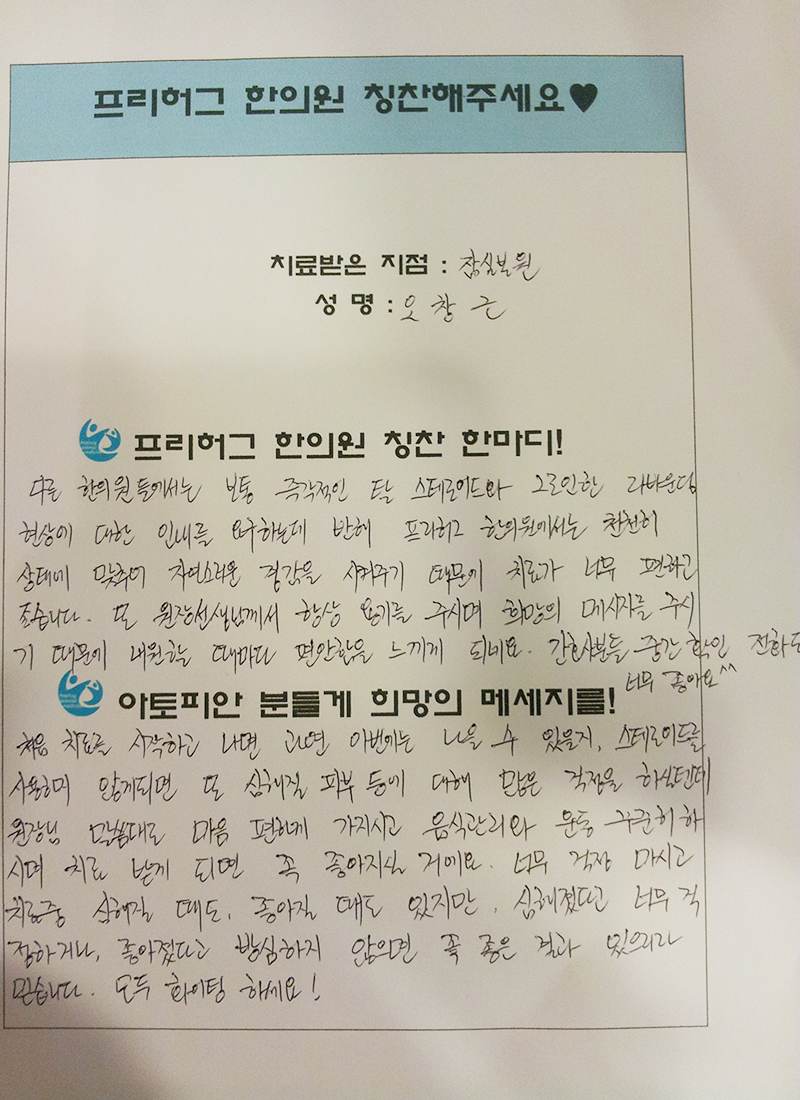 프리허그 한의원 칭찬해주세요♥
치료받은 지점 : 잠실본원
성 명 : 오창근
프리허그 한의원 칭찬 한마디!
다른 한의원들에서는 보통 즉각적인 탈 스테로이드와 그로인한 리바운딩
현상에 대한 인내를 요구하는데 반해 프리허그 한의원에서는 천천히
상태에 맞추어 자연스러운 경감을 시켜주기 때문에 치료가 너무 편하고
좋습니다. 또 원장선생님께서 항상 용기를 주시며 희망의 메시지를 주시
기 때문에 내원할 때마다 편안함을 느끼게 되네요. 간호사분들 중간 확인 전화도
너무 좋아요^^
아토피안 분들게 희망의 메세지를!
처음 치료를 시작하고 나면 과연 이번에는 나을 수 있을지, 스테로이드를
사용하며 않게되면 또 심해질 피부 등에 대해 많은 걱정을 하실텐데
원장님 말씀대로 마음 편하게 가지시고 음식관리와 운동 꾸준히 하
시며 치료 받게 되면 꼭 좋아지실 거에요. 너무 걱정 마시고
치료중 심해질 때도, 좋아질 때도 있지만, 심해졌다고 너무 걱
정하거나, 좋아졌다고 방심하지 않으면 꼭 좋은 결과 있으리라
믿습니다. 모두 화이팅 하세요!